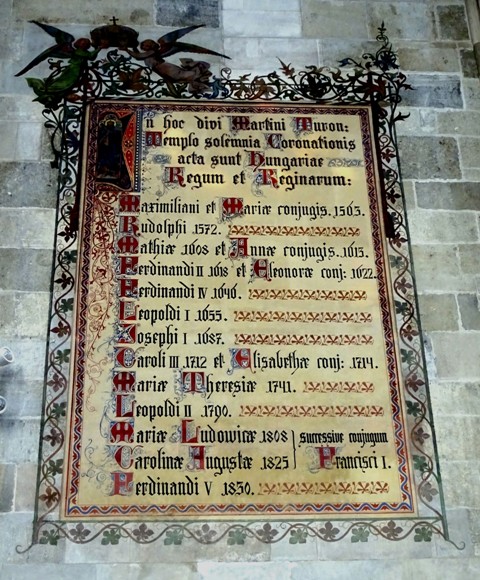 In hoc divi Martini Turon:
Templo solemnia Coronationis
acta sunt Hungariae
Regum et Reginarum:
Maximiliani et Mariæ conjugis. 1563.
Rudolphi .1572.
Mathiæ .1608 et Annæ conjugis..1613.
Ferdinandi II .1618 et Eleonoræ conj: 1622.
Ferdinandi IV .1646.
Leopoldi I .1655.
Josephi I .1687.
Caroli III .1712 et Elisabethæ conj: 1714.
Mariæ Theresiæ 1741.
Leopoldi II .1790.
Mariæ Ludovicæ .1808 successive conjugum
Carolinæ Augustæ .1825 Francisci I.
Ferdinandi V .1830.